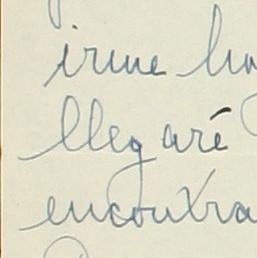 irme ha
llegaré
encontra